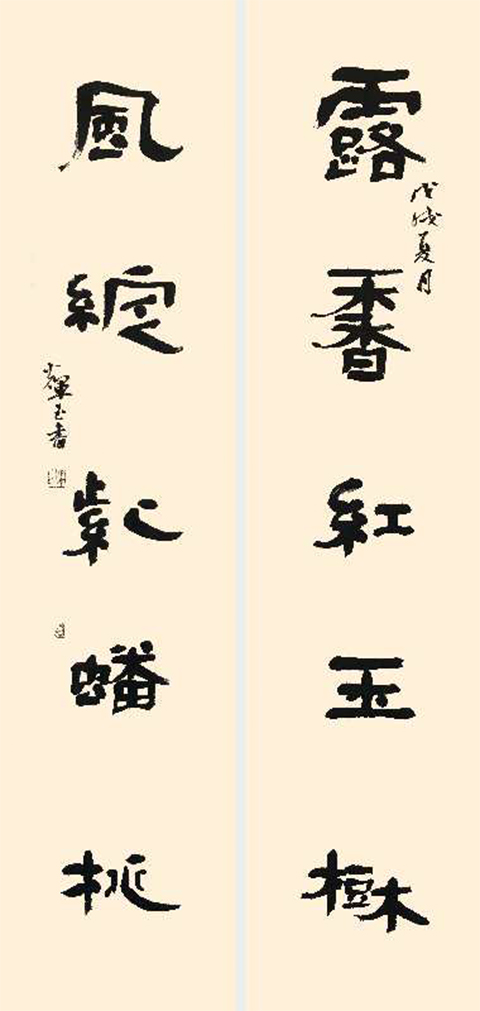 露香紅玉樹
戊戌夏月
風綻紫蟠桃